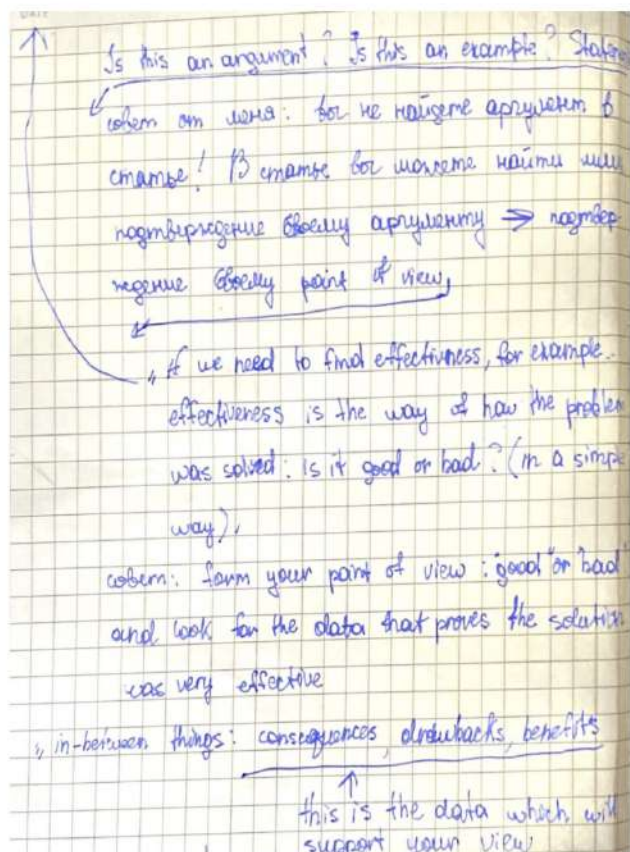 DATE
Is this an argument? Is this an example? Statem
совет от меня: вы не найдете аргумент в
статье! В статье вы можете найти лишь
подтверждение своему аргументу → подтвер
ждение своему point of view,
" If we need to find effectivness, for example..
effectiveness is the way of how the problem
was solved: is it good or bad? (in a simple
way),
совет: form your point of view: "good" or "bad"
and look for the data that proves the solution
was very effective
" in-between things: consequences, drawbacks, benefits
↑
this is the data which will
support your view